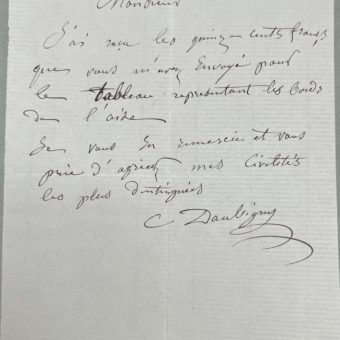 Monsieur
J'ai reçu les quinze cents francs
que vous m'avez Envoyé pour
le tableau representant les bords
de l'oise
Je vous En remercie et vous
prie d'agréer mes Civilités
les plus distinguées
C Daubigny